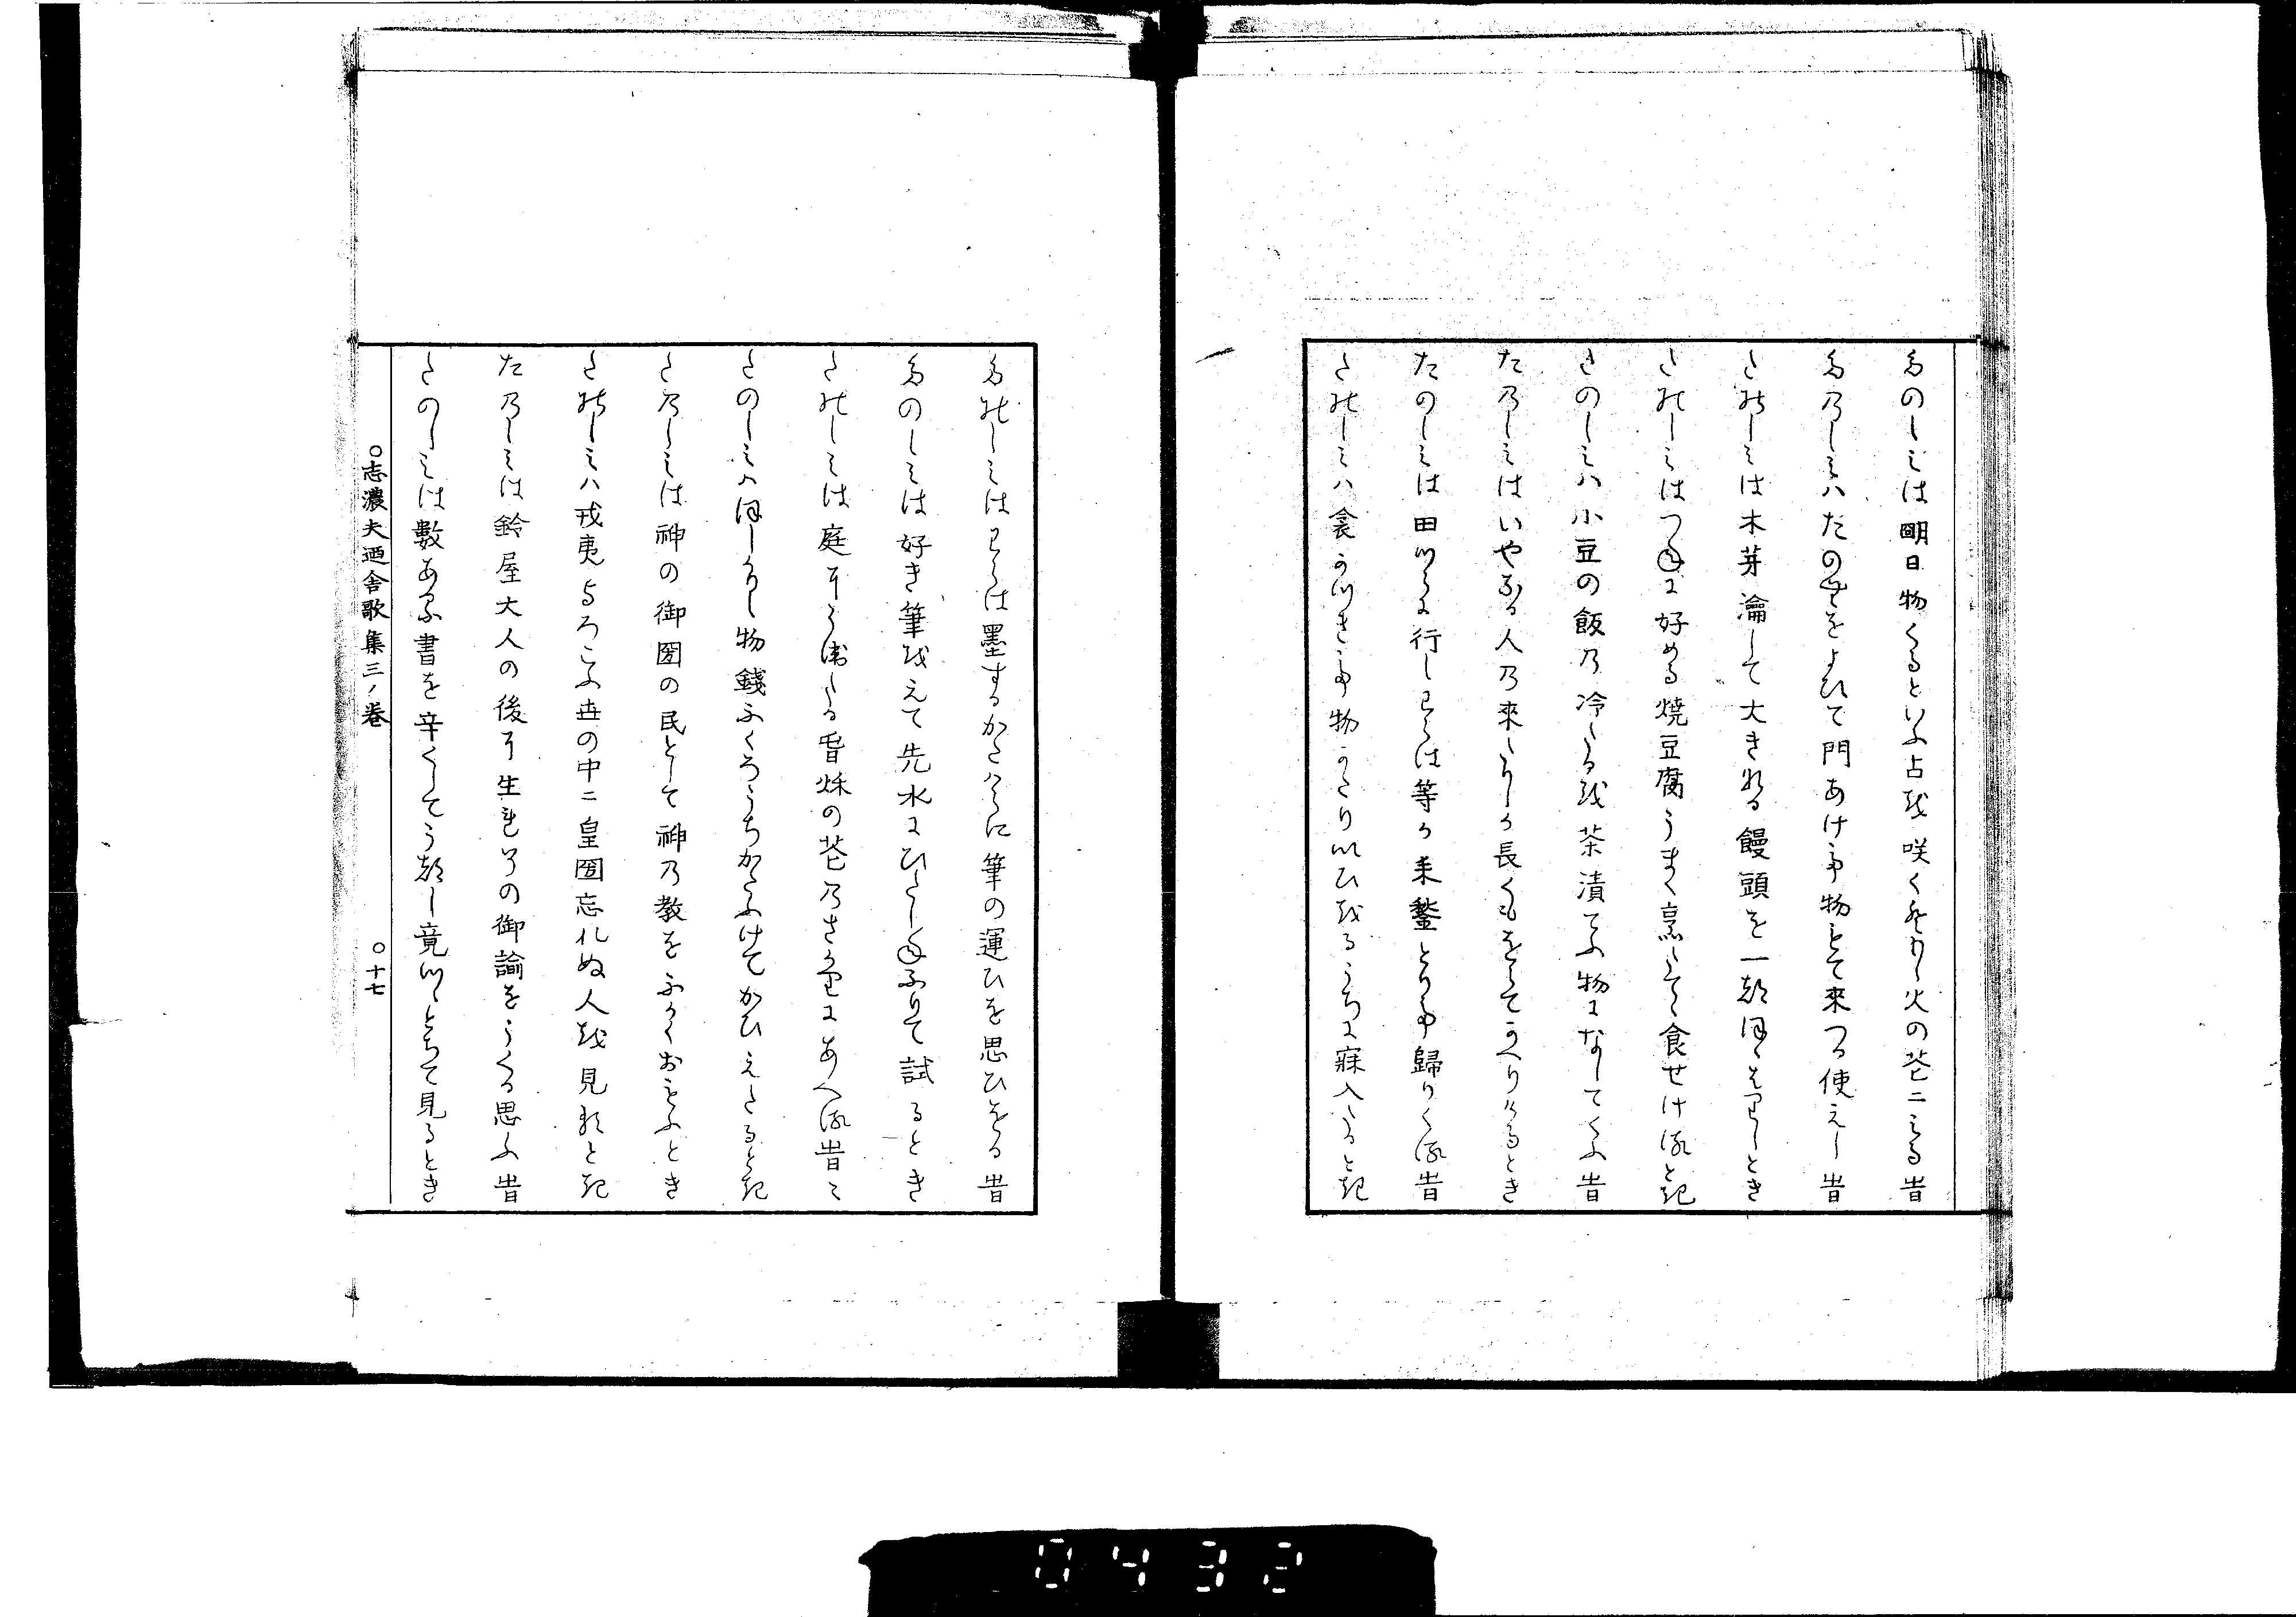 たのしみは明日物くるといふ占を咲くともし火の花にみる時
たのしみはたのむをよびて門あけて物もて來つる使えし時
たのしみは木芽瀹して大きなる饅頭を一つほゝばりしとき
たのしみはつねに好める焼豆腐うまく烹たてゝ食せけるとき
たのしみは小豆の飯の冷たるを茶漬てふ物になしてくふ時
たのしみはいやなる人の來たりしが長くもをらでかへりけるとき
たのしみは田づらに行しわらは等が耒鍫とりて歸りくる時
たのしみは衾かづきて物がたりいひをるうちに寐入たるとき
たのしみはわらは墨するかたはらに筆の運びを思ひをる時
たのしみは好き筆をえて先水にひたしねぶりて試るとき
たのしみは庭にうゑたる春秋の花のさかりにあへる時々
たのしみはほしかりし物錢ぶくろうちかたぶけてかひえたるとき
たのしみは神の御圀の民として神の教をふかくおもふとき
たのしみは戎夷よろこぶ世の中に皇圀忘れぬ人を見るとき
たのしみは鈴屋大人の後に生れその御諭をうくる思ふ時
たのしみは數ある書を辛くしてうつし竟つゝとぢて見るとき
○志濃夫廼舎歌集三ノ巻 ○十七
0432